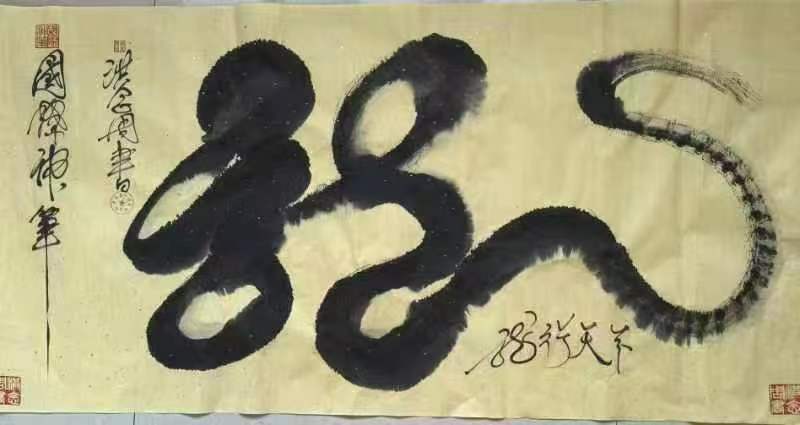 龍
龍行天下
洪志周書
國際神筆